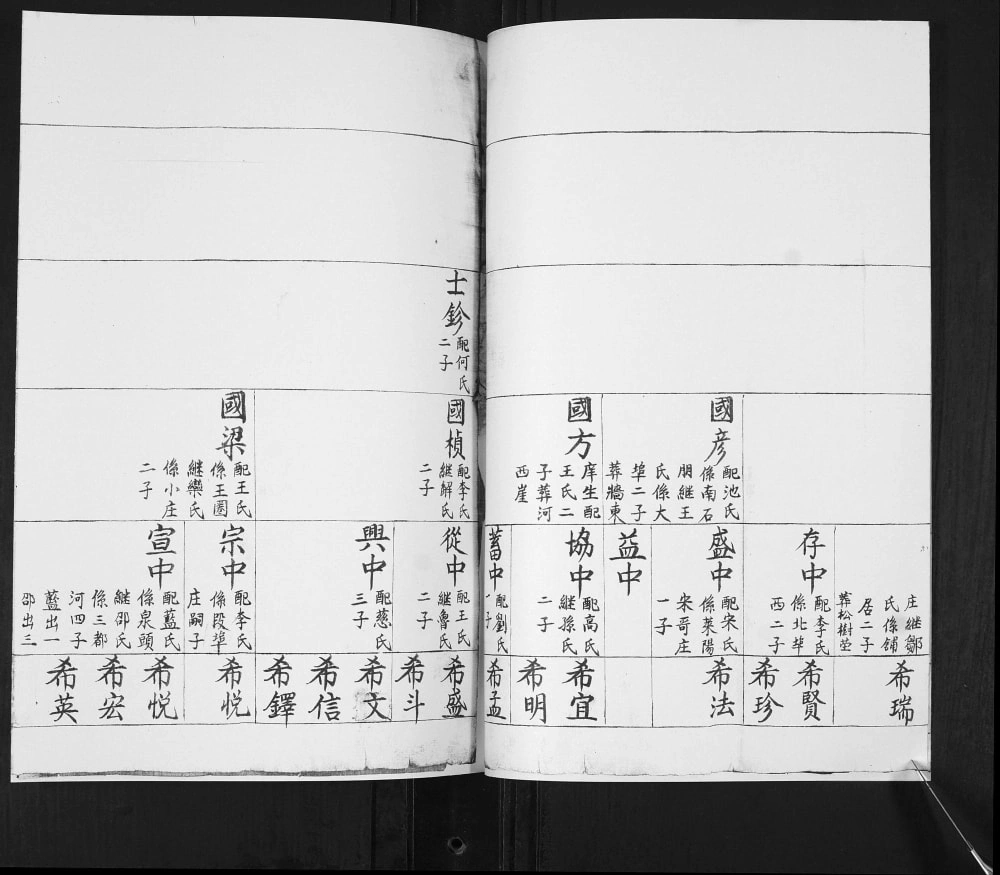 國彦
配池氏
係南石
朋継王
氏係大
埠二子
葬牆東
國方
庠生配
王氏二
子葬河
西崖
庄継鄒
氏係舖
居二子
葬松樹茔
存中
配李氏
係北埠
西二子
盛中
配宋氏
係萊陽
宋哥庄
一子
益中
協中
配高氏
継孫氏
二子
蓄中
配劉氏
一子
希瑞
希賢
希珍
希法
希宜
希明
希孟
士鉁
配何氏
二子
國楨
配李氏
継解氏
二子
國梁
配王氏
係王圏
継欒氏
係小庄
二子
從中
配王氏
継魯氏
二子
興中
配慈氏
三子
宗中
配李氏
係段埠
庄嗣子
宣中
配藍氏
係泉頭
継邵氏
係三都
河四子
藍出一
邵出三
希盛
希斗
希文
希信
希鐸
希悦
希悦
希宏
希英